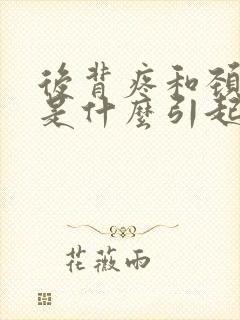 後背疼和頸
是什麼引起
花薇雨